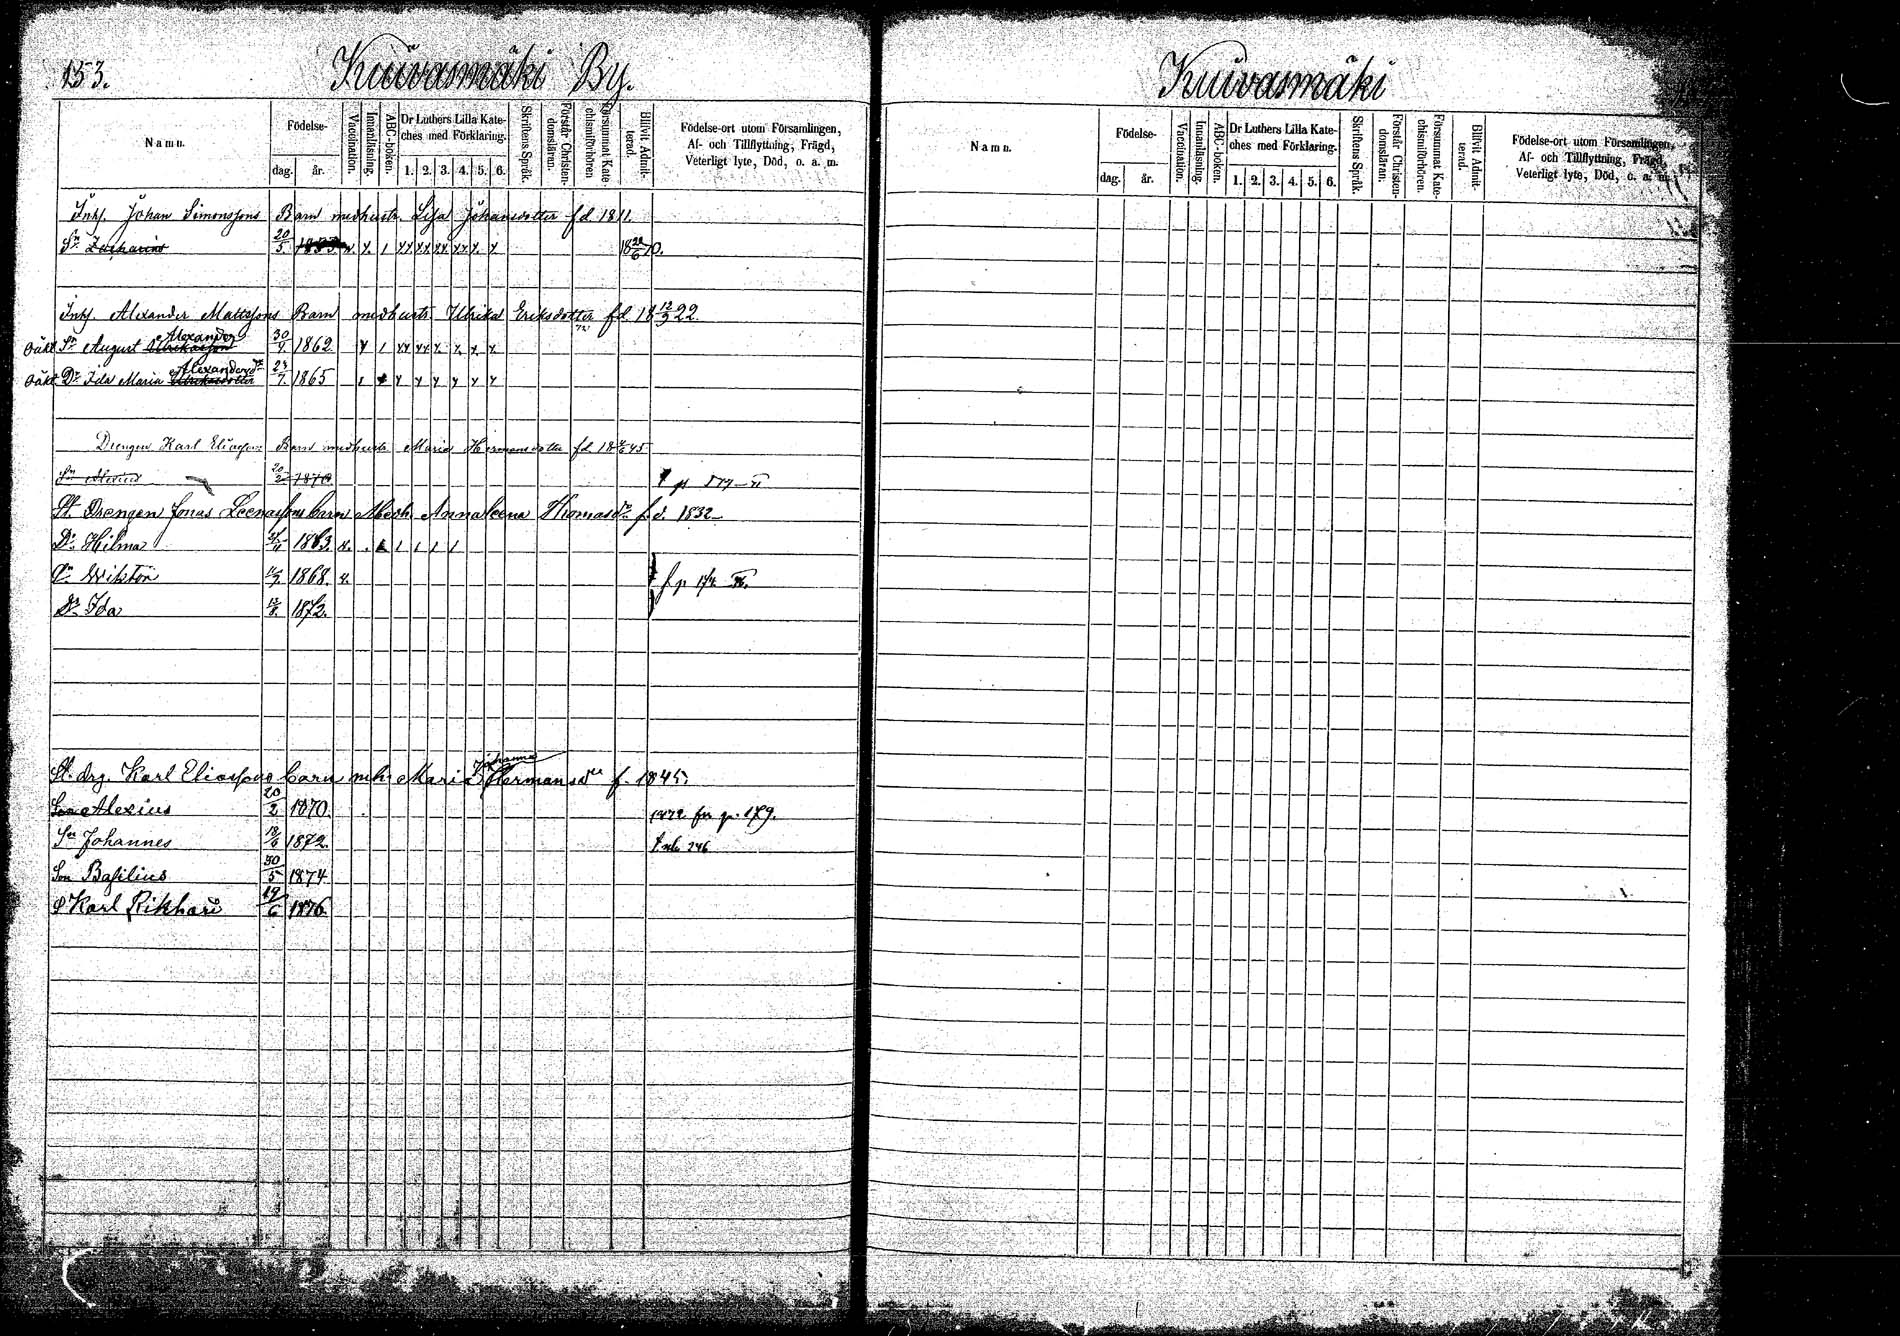 153.
Kuivasmäki By.
Namn.
Födelse-
dag. år.
Vaccination.
Innanläsning.
ABC-boken.
Dr Luthers Lilla Kate-
ches med Förklaring.
1. 2. 3. 4. 5. 6.
Skriftens Språk.
Förstår Christen-
domsläran.
Försummat Kate
chismiförhören
Blifvit Admit-
terad.
Födelse-ort utom Församlingen,
Af- och Tillflyttning, Frägd,
Veterligt lyte, Död, o. a. m.
Inhs. Johan Simonssons Barn med hustr. Lisa Johansdotter fd 1811.
Sn Zacharias 20/5. 1853
Inhs. Alexander Mattssons Barn med hustr Ulrika Eriksdotter fd 18 12/9 22.
Alexander
Oäkt Sn August Ulrikasson 30/9. 1862
Alexandersdr
Oäkt Dr Ida Maria Ulrikasdotter 23/7. 1865
Drengen Karl Eliasson Barn med hustr Maria Hermansdotter fd 45
Sn Alexius 20/2 1870
St. Drengen Jonas Leenassons barn Med h. Anna Leena Thomasdr f. d. 1832
Dr Hilma 1863.
Sn Wiktor 1868.
Dr Ida 13/8. 1872.
Johanna
St. drg. Karl Eliassons barn m.h. Maria Hermansdr f. 1845.
Son Alexius 20/2 1870. 1872 fr p. 179.
Sn Johannes 18/6 1872. 246
Son Basilius 30/5 1874
S Karl Rikhard 19/6 1876.
Kuivasmäki
Namn.
Födelse-
dag. år.
Vaccination.
Innanläsning.
ABC-boken.
Dr Luthers Lilla Kate-
ches med Förklaring.
1. 2. 3. 4. 5. 6.
Skriftens Språk.
Förstår Christen-
domsläran.
Försummat Kate-
chismiförhören.
Blifvit Admit-
terad.
Födelse-ort utom Församlingen,
Af- och Tillflyttning, Frägd,
Veterligt lyte, Död, o. a. m.